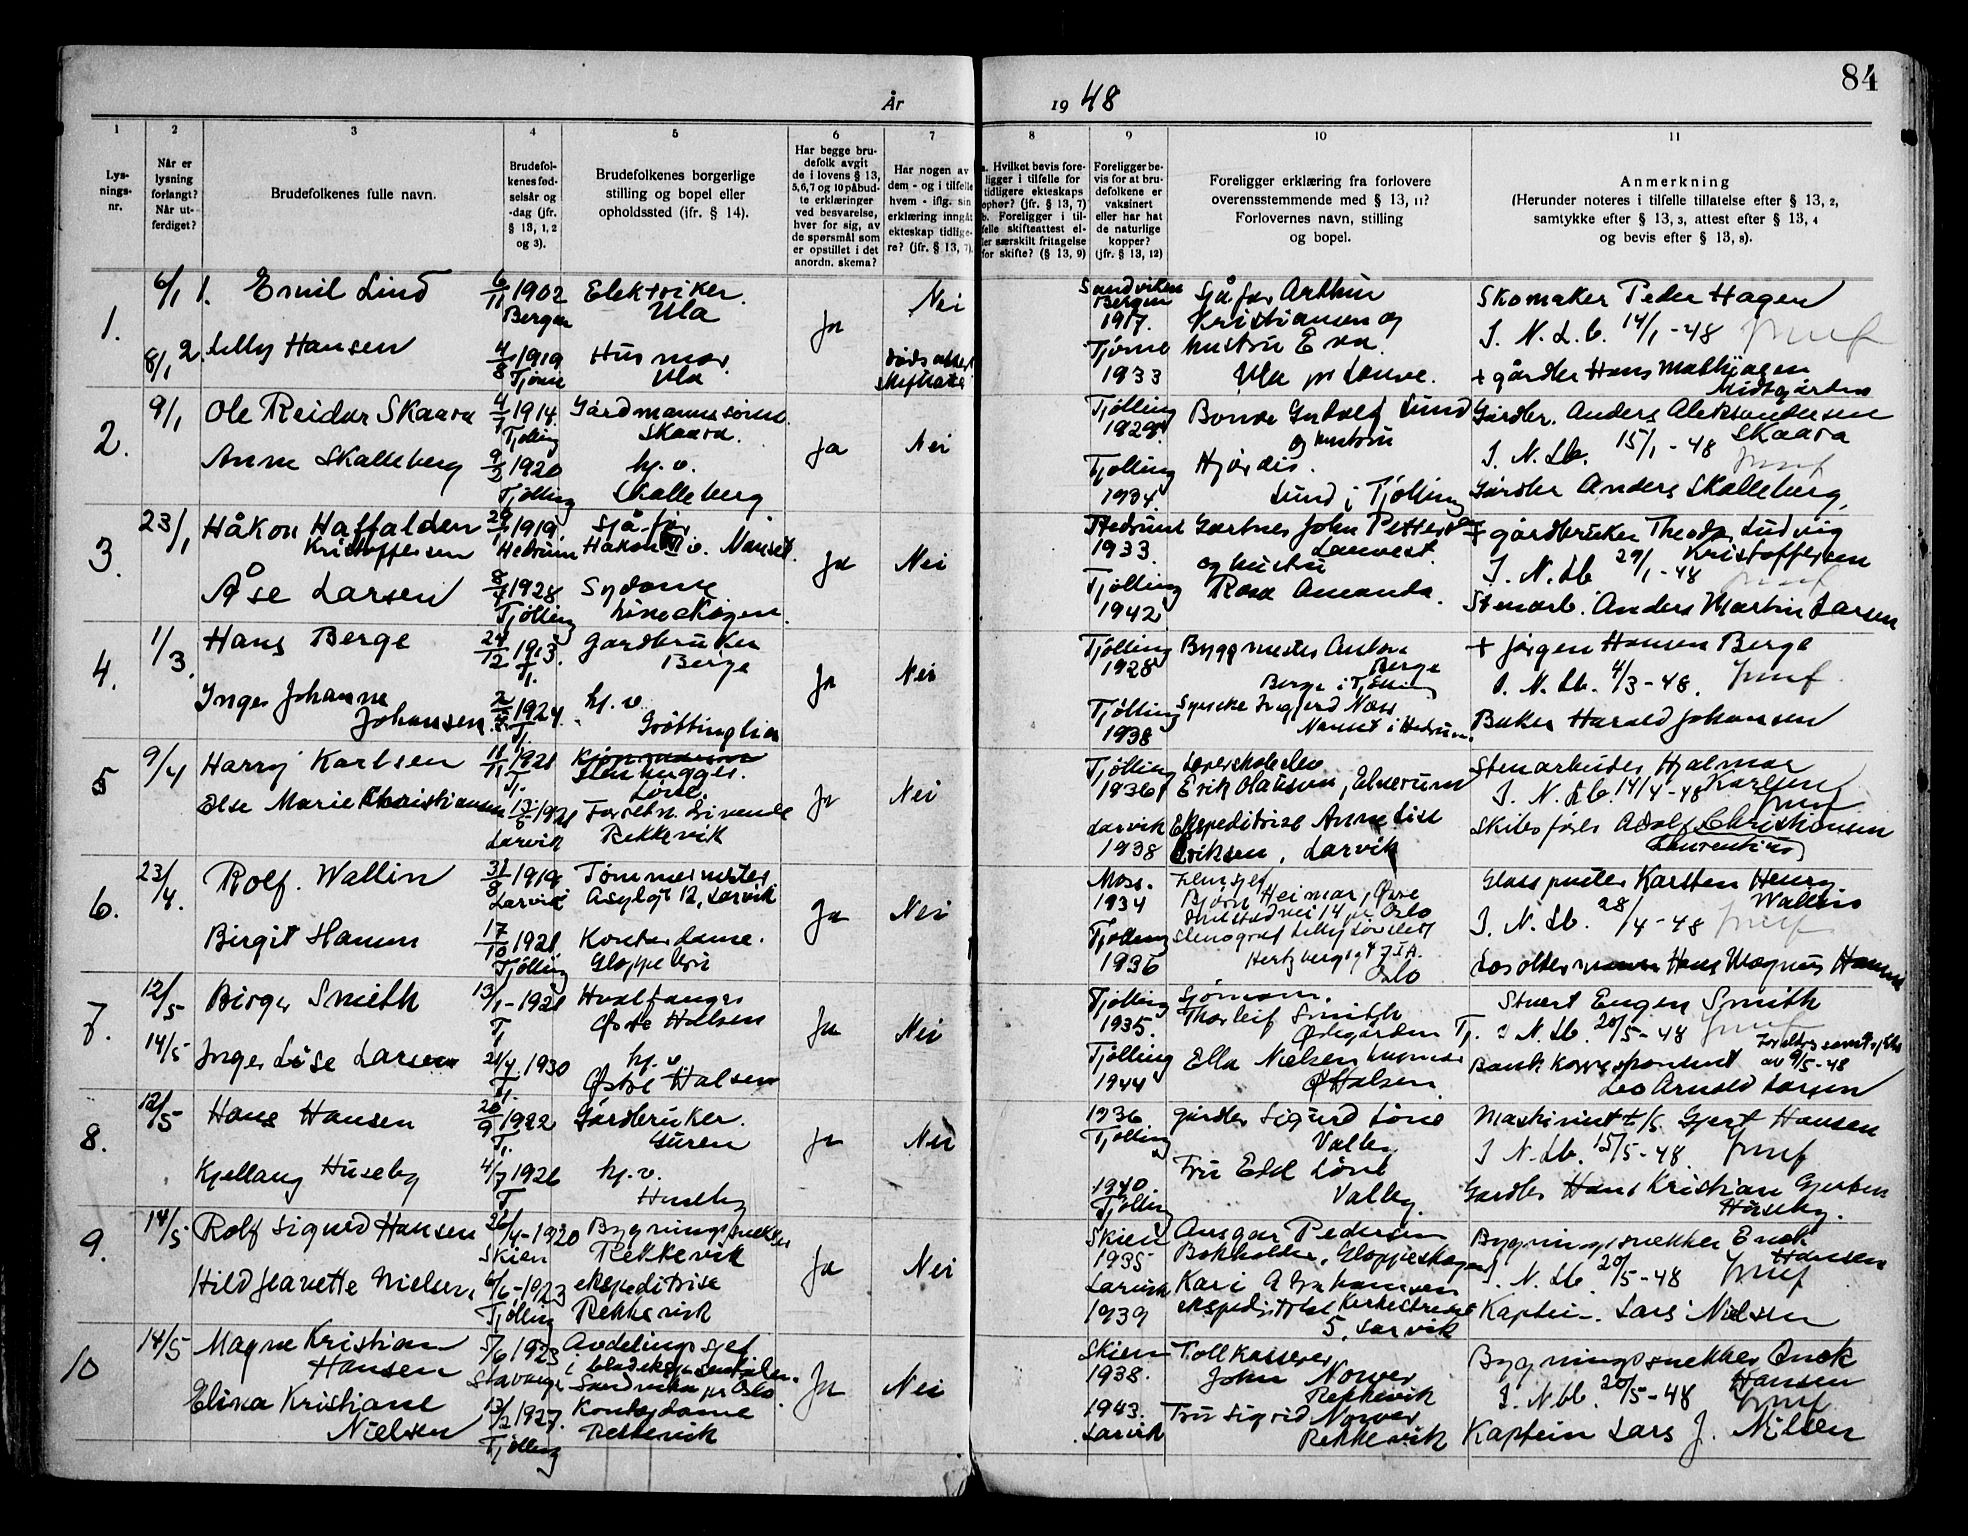 84
År 1948
1 2 3 4 5 6 7 8 9 10 11
Lys-
nings-
nr.
Når er
lysning
forlangt?
Når ut-
ferdiget?
Brudefolkenes fulle navn.
Brudefol-
kenes fød-
selsår og
-dag (jfr.
§ 13, 1, 2
og 3).
Brudefolkenes borgerlige
stilling og bopel eller
opholdssted (jfr. § 14).
Har begge bru-
defolk avgit
de i lovens § 13,
5,6,7 og 10 påbud-
te erklæringer
ved besvarelse,
hver for sig, av
de spørsmål som
er opstillet i det
anordn. skema?
Har nogen av
dem - og i tilfelle
hvem - iflg. sin
erklæring inngåt
ekteskap tidlige-
re? (jfr. § 13, 7).
a. Hvilket bevis fore-
ligger i tilfelle for
tidligere ekteskaps
ophør? (jfr. § 13, 7)
b. Foreligger i til-
felle skifteattest el-
ler særskilt fritagelse
for skifte? (§ 13, 9)
Foreligger be-
vis for at bru-
defolkene er
vaksinert
eller har hat
de naturlige
kopper?
(jfr. § 13, 12)
Foreligger erklæring fra forlovere
overensstemmende med § 13, 11?
Forlovernes navn, stilling
og bopel.
Anmerkning
(Herunder noteres i tilfelle tillatelse efter § 13, 2,
samtykke efter § 13, 3, attest efter § 13, 4
og bevis efter § 13, 8).
1.
6/1 1. Emil Lind 6/11 1902 Bergen Elektriker. Ula
8/1 2. Lilly Hansen 4/8 1919 Tjøme Husmor Ula
Ja
Nei
Sandviken Bergen 1917.
Tjøme 1933
Sjåfør Arthur
Kristiansen og
hustru Eva.
Ula pr Lauve.
Skomaker Peder Hagen
I. N. L. b. 14/1 - 48
+ gårdbr Hans Mathias
Midtgården
2.
9/1 Ole Reidar Skaara 4/7 1914. Tjølling Gårdmannssønn Skaara.
Anne Skalleberg 9/2 1920 Tjølling hj. v. Skalleberg
Ja
Nei
Tjølling 1929.
Tjølling 1934.
Bonde Lund
og hustru
Hjørdis.
Lund i Tjølling
Gårdbr. Anders Aleksandersen
Skaara
I. N. Lb. 15/1 - 48
Gårdbr Anders Skalleberg.
3.
23/1 Håkon Haffalden
Kristoffersen 1919 Hedrum Sjåfør Håkon VII v. Nanset.
Åse Larsen 8/7 1928 Tjølling Sydame Lineskogen.
Ja
Nei
Hedrum 1933.
Tjølling 1942
Gartner John Petterson
Lauvest.
og hustru
Rosa Amanda.
+ gårdbruker Theodor Ludvig
Kristoffersen
I. N. Lb 29/1 - 48
Stenarb. Anders Martin Larsen
4.
1/3. Hans Berge 24/12 1913. Tj. Gardbruker Berge
Inger Johanne
Johansen. 1924. Tj. hj. v. Grøttinglia
Ja
Nei
Tjølling 1928
Tjølling 1938
Byggmester Anton
Berge
Berge i Tjølling
Syerske Ingjerd Næss
Nanset i Hedrum.
+ Jørgen Hansen Berge
I. N. Lb. 4/3 - 48.
Baker Harald Johansen
5
9/4 Harry Karlsen 11/11 1921 Tj. Stenhugger.
Else Marie Christiansen 1921 Larvik Forretn. drivende Rekkevik
Ja
Nei
Tjølling 1936
Larvik 1938
Erik Olausson, Elverum
Ekspeditrise Anne Lise
Eriksen, Larvik
Stenarbeider Hjalmar
Karlsen
I. N. Lb. 14/4 - 48
Skibsfører Adolf Christiansen
Laurentius
6.
23/4. Rolf Wallin 31/8 1919 Larvik Tømmermester Asylgt 12, Larvik
Birgit Hansen 17/10 1921 Tjølling Kontordame. Gloppe
Ja
Nei
Moss. 1934
Tjølling 1936
Bjørn Heimar, Øvre
14 pr Oslo
Stenograf Lilly
Hertzbergsgt 7 IA.
Oslo
Glasspuster Karsten Henry
Wallin
I. N. Lb. 28/4 - 48
Losoldermann Hans Magnus Hansen
7.
12/5 Birger Smith 13/1 - 1921 T Hvalfanger Østre Halsen
14/5 Inger Lise Larsen 21/4 1930 Tj. hj. v. Østre Halsen
Ja
Nei
Tjølling 1935.
Tjølling 1944
Sjømann.
Thorleif Smith
Ødegården Tj.
Ella Nielsen
Ø Halsen.
Stuert Eugen Smith
I N. Lb. 20/5 - 48
av 9/5 - 48
Bank korrespondent
Leo Arnold Larsen
8.
12/5 Hans Hansen 20/9 1922 Tj. Gårdbruker. Guren
Kjellaug Huseby 4/7 1926 T hj. v. Huseby
Ja
Nei
1936 Tjølling
1940. Tjølling
gårdbr Sigurd Løve
Valby
Fru Edel Løve
Valby.
Maskinist Gjert Hansen
I N. Lb. 15/5 - 48.
Gardbr Hans Kristian Gjertsen
Huseby.
9.
14/5 Rolf Sigurd Hansen 26/4 - 1920 Skien Bygningssnekker Rekkevik
Hild Jeanette Nielsen 6/6 - 1923 Tjølling ekspeditrise Rekkevik
Ja
Nei
Skien 1935
Larvik 1939
Ansgar Pedersen
Bokholder, Gloppeskogen
Kari Abrahamsen
ekspeditrise Kirkestredet
5, Larvik
Bygningssnekker Enok
Hansen
I. N. Lb. 20/5 - 48
Kaptein. Lars Nielsen
10
14/5 Magne Kristian
Hansen 5/6 1923 Stavanger Avdelingssjef
Sandvika pr Oslo.
Elina Kristiane
Nielsen 13/2 1927. Tjølling Kontordame Rekkevik
Ja
Nei
Skien 1938.
1943. Larvik
Tollkasserer
John Norver
Rekkevik
Fru Sigrid Norver
Rekkevik
Bygningssnekker Enok
Hansen
I. N. Lb. 20/5 - 48
Kaptein Lars J. Nilsen